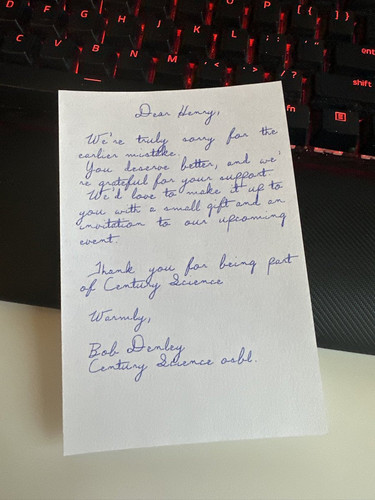 Dear Henry,
We're truly sorry for the
earlier mistake.
You deserve better, and we'
re grateful for your support.
We'd love to make it up to
you with a small gift and an
invitation to our upcoming
event.
Thank you for being part
of Century Science
Warmly,
Bob Denley
Century Science asbl.